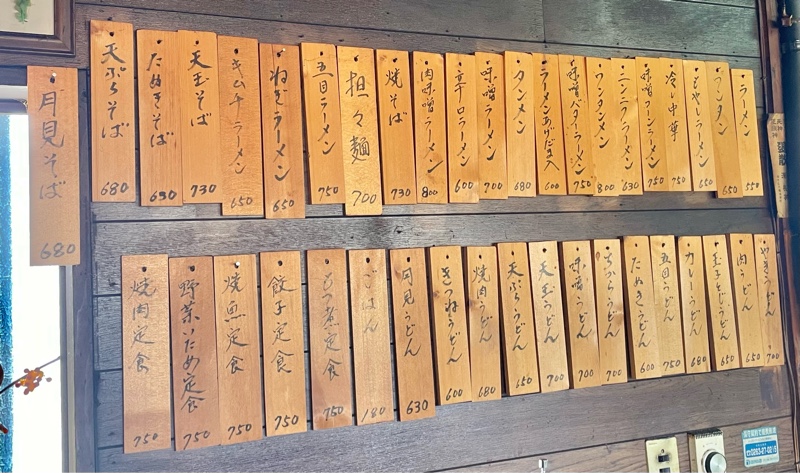 ラーメン 550
ワンタン 650
もやしラーメン 650
冷し中華 750
味噌コーンラーメン 750
ニンニクラーメン 630
ワンタンメン 800
味噌バターラーメン 750
ラーメンあげだま入 600
タンメン 680
味噌ラーメン 700
辛口ラーメン 600
肉味噌ラーメン 800
焼そば 730
担々麺 700
五目ラーメン 750
ねぎラーメン 650
キムチラーメン 650
天玉そば 730
たぬきそば 630
天ぷらそば 680
月見そば 680
やきうどん 700
肉うどん 650
玉子とじうどん 650
カレーうどん 680
五目うどん 750
たぬきうどん 600
ちからうどん 700
味噌うどん 700
天玉うどん 700
天ぷらうどん 650
焼肉うどん 680
きつねうどん 600
月見うどん 630
ごはん 180
もつ煮定食 750
餃子定食 750
焼魚定食 750
野菜いため定食 750
焼肉定食 750